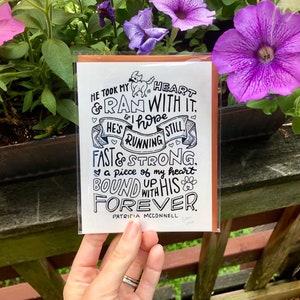 HE TOOK MY HEART
& RAN WITH IT.
I hope
HE'S RUNNING STILL
FAST & STRONG,
a piece of my heart
BOUND UP WITH HIS
FOREVER
PATRICIA MCCONNELL